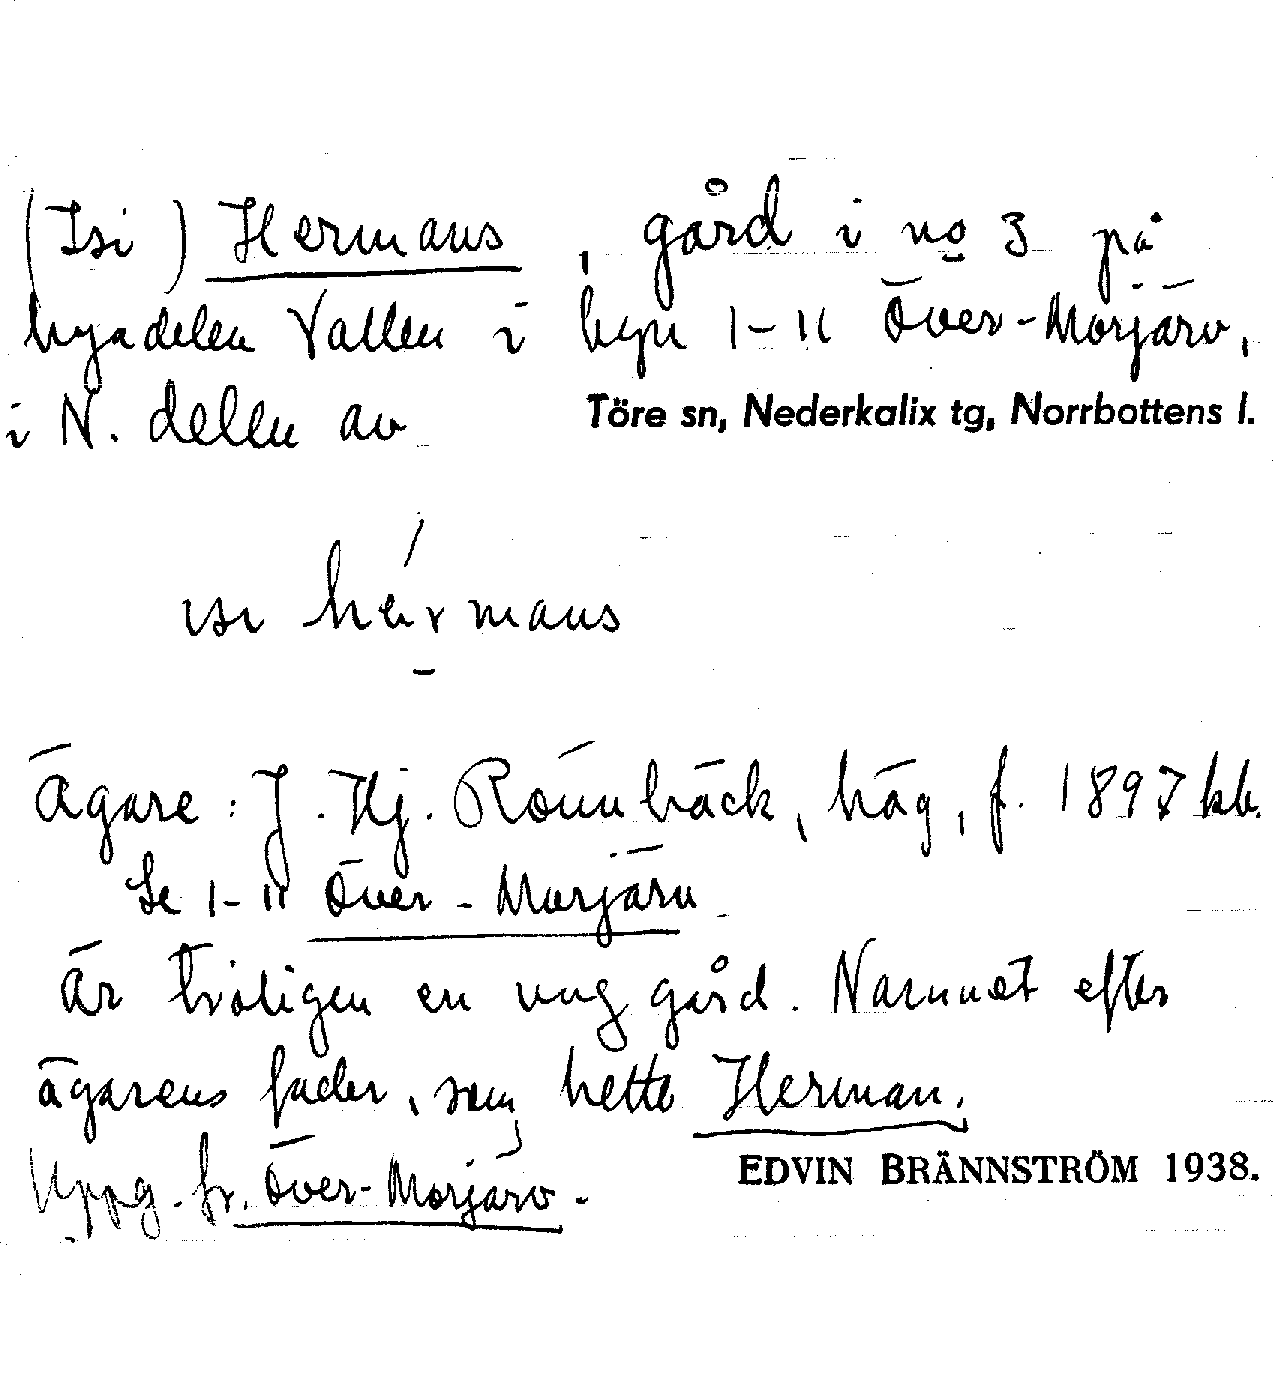 (Isi) Hermans, gård i no 3 på
byadelen Vallen i byn 1-11 Över-Morjärv,
i N. delen av Töre sn, Nederkalix tg, Norrbottens l.
isi hermans
Ägare: J. Hj. Rönnbäck, häg, f. 1897 kb.
Se 1-11 Över-Morjärv
Är troligen en ung gård. Namnet efter
ägarens fader, som hette Herman.
Uppg. fr. Över-Morjärv.
EDVIN BRÄNNSTRÖM 1938.